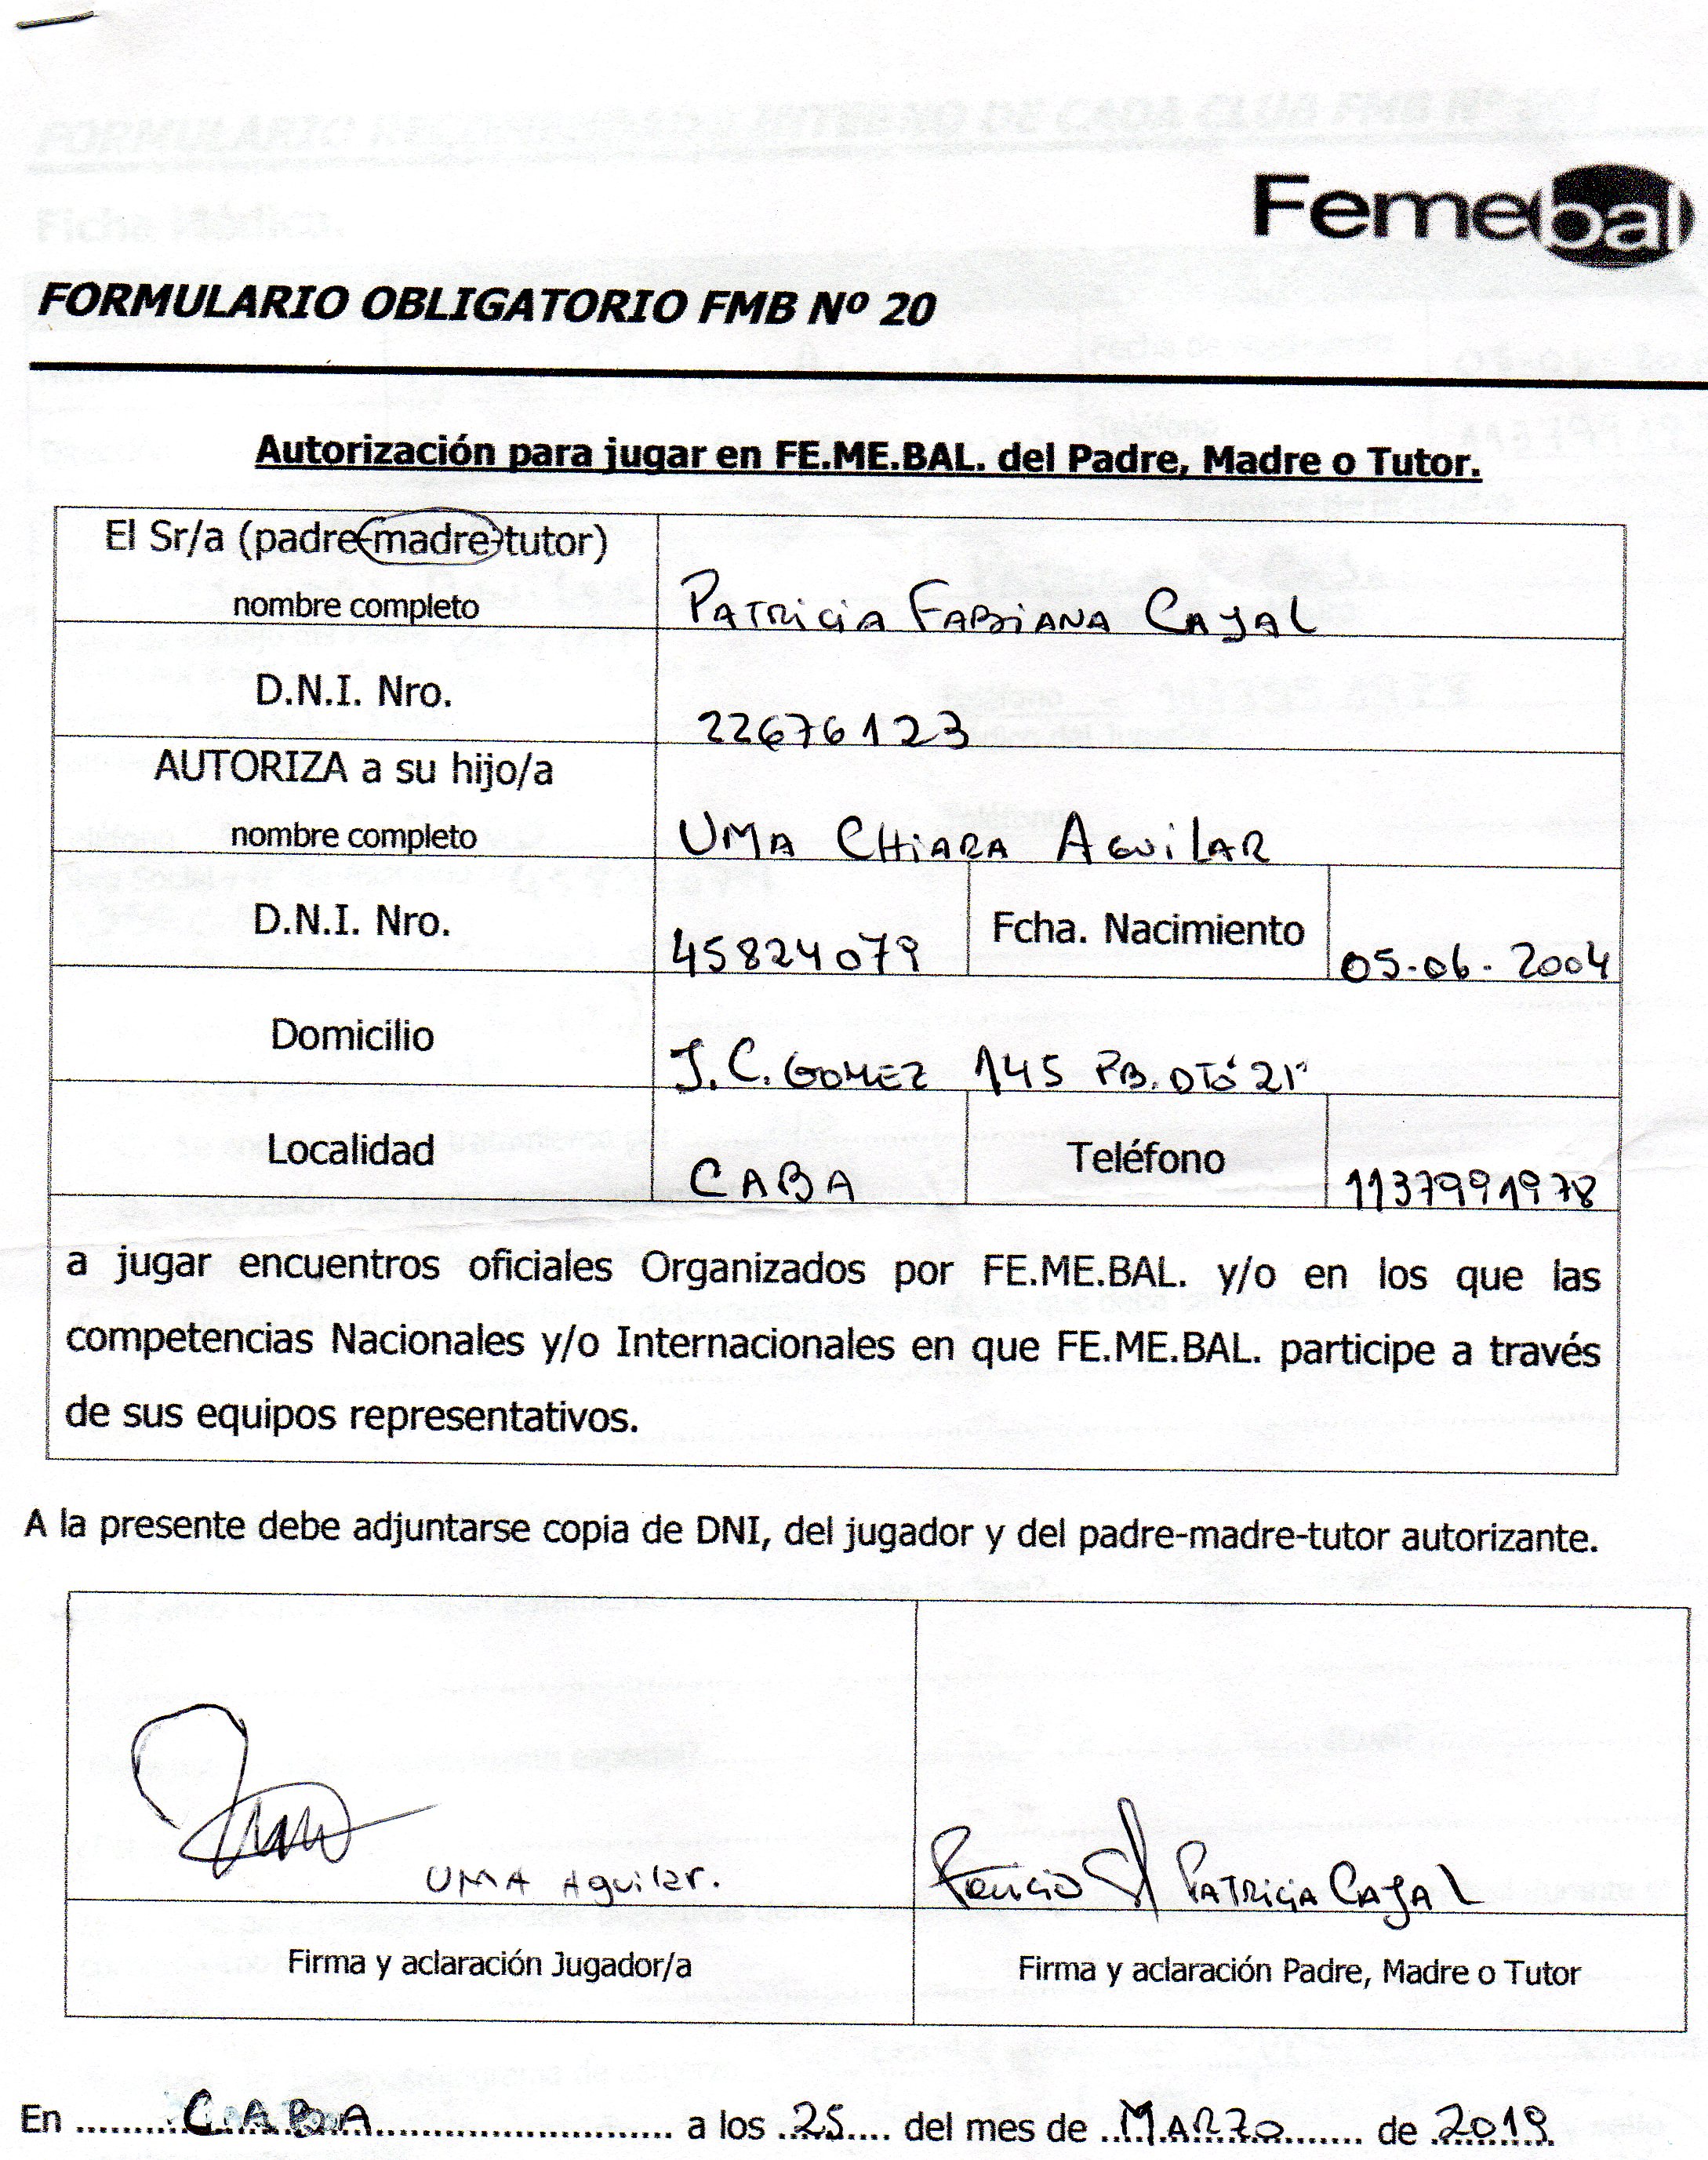 Femebal
FORMULARIO OBLIGATORIO FMB Nº 20
Autorización para jugar en FE.ME.BAL. del Padre, Madre o Tutor.
El Sr/a (padre-madre-tutor)
nombre completo
PATRICIA FABIANA CAJAL
D.N.I. Nro.
22676123
AUTORIZA a su hijo/a
nombre completo
UMA CHIARA AGUILAR
D.N.I. Nro.
45824079
Fcha. Nacimiento
05-06-2004
Domicilio
J.C. GOMEZ 145 PB. DTO 21
Localidad
CABA
Teléfono
1137991978
a jugar encuentros oficiales Organizados por FE.ME.BAL. y/o en los que las
competencias Nacionales y/o Internacionales en que FE.ME.BAL. participe a través
de sus equipos representativos.
A la presente debe adjuntarse copia de DNI, del jugador y del padre-madre-tutor autorizante.
UMA Aguilar.
PATRICIA CAJAL
Firma y aclaración Jugador/a
Firma y aclaración Padre, Madre o Tutor
En ..........C.A.B.A.............................. a los .25.... del mes de ..MARZO........ de .2019.